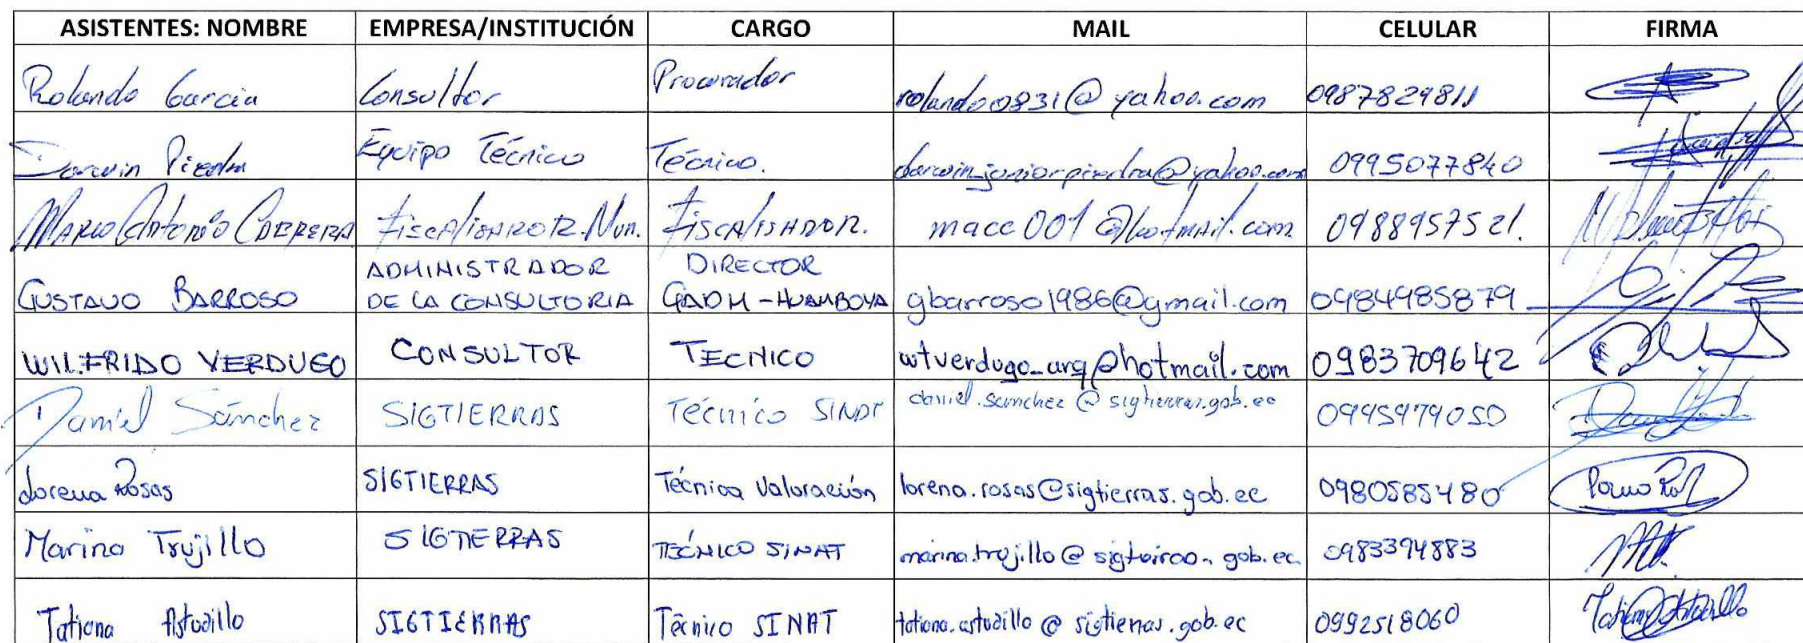 ASISTENTES: NOMBRE EMPRESA/INSTITUCIÓN CARGO MAIL CELULAR FIRMA
Rolando Garcia Consultor Procurador rolando0831@yahoo.com 0987829811
Darwin Piedra Equipo Técnico Técnico. darwin_juniorpiedra@yahoo.com 0995077840
Mario Antonio Cabrera Fiscalisador. Mun. Fiscalisador. macc001@hotmail.com 0988957521.
ADMINISTRADOR DIRECTOR
GUSTAVO BARROSO DE LA CONSULTORIA GADM-HUAMBOYA gbarroso1986@gmail.com 0984985879
WILFRIDO VERDUGO CONSULTOR TECNICO wtverdugo_arq@hotmail.com 0983709642
Daniel Sánchez SIGTIERRAS Técnico SINAT daniel.sanchez@sigtierras.gob.ec 0995979050
Lorena Rosas SIGTIERRAS Técnica Valoración lorena.rosas@sigtierras.gob.ec 0980585480
Marina Trujillo SIGTIERRAS TECNICO SINAT marina.trujillo@sigtierras.gob.ec 0983394883
Tatiana Astudillo SIGTIERRAS Técnico SINAT tatiana.astudillo@sigtierras.gob.ec 0992518060 Tatiana Astudillo